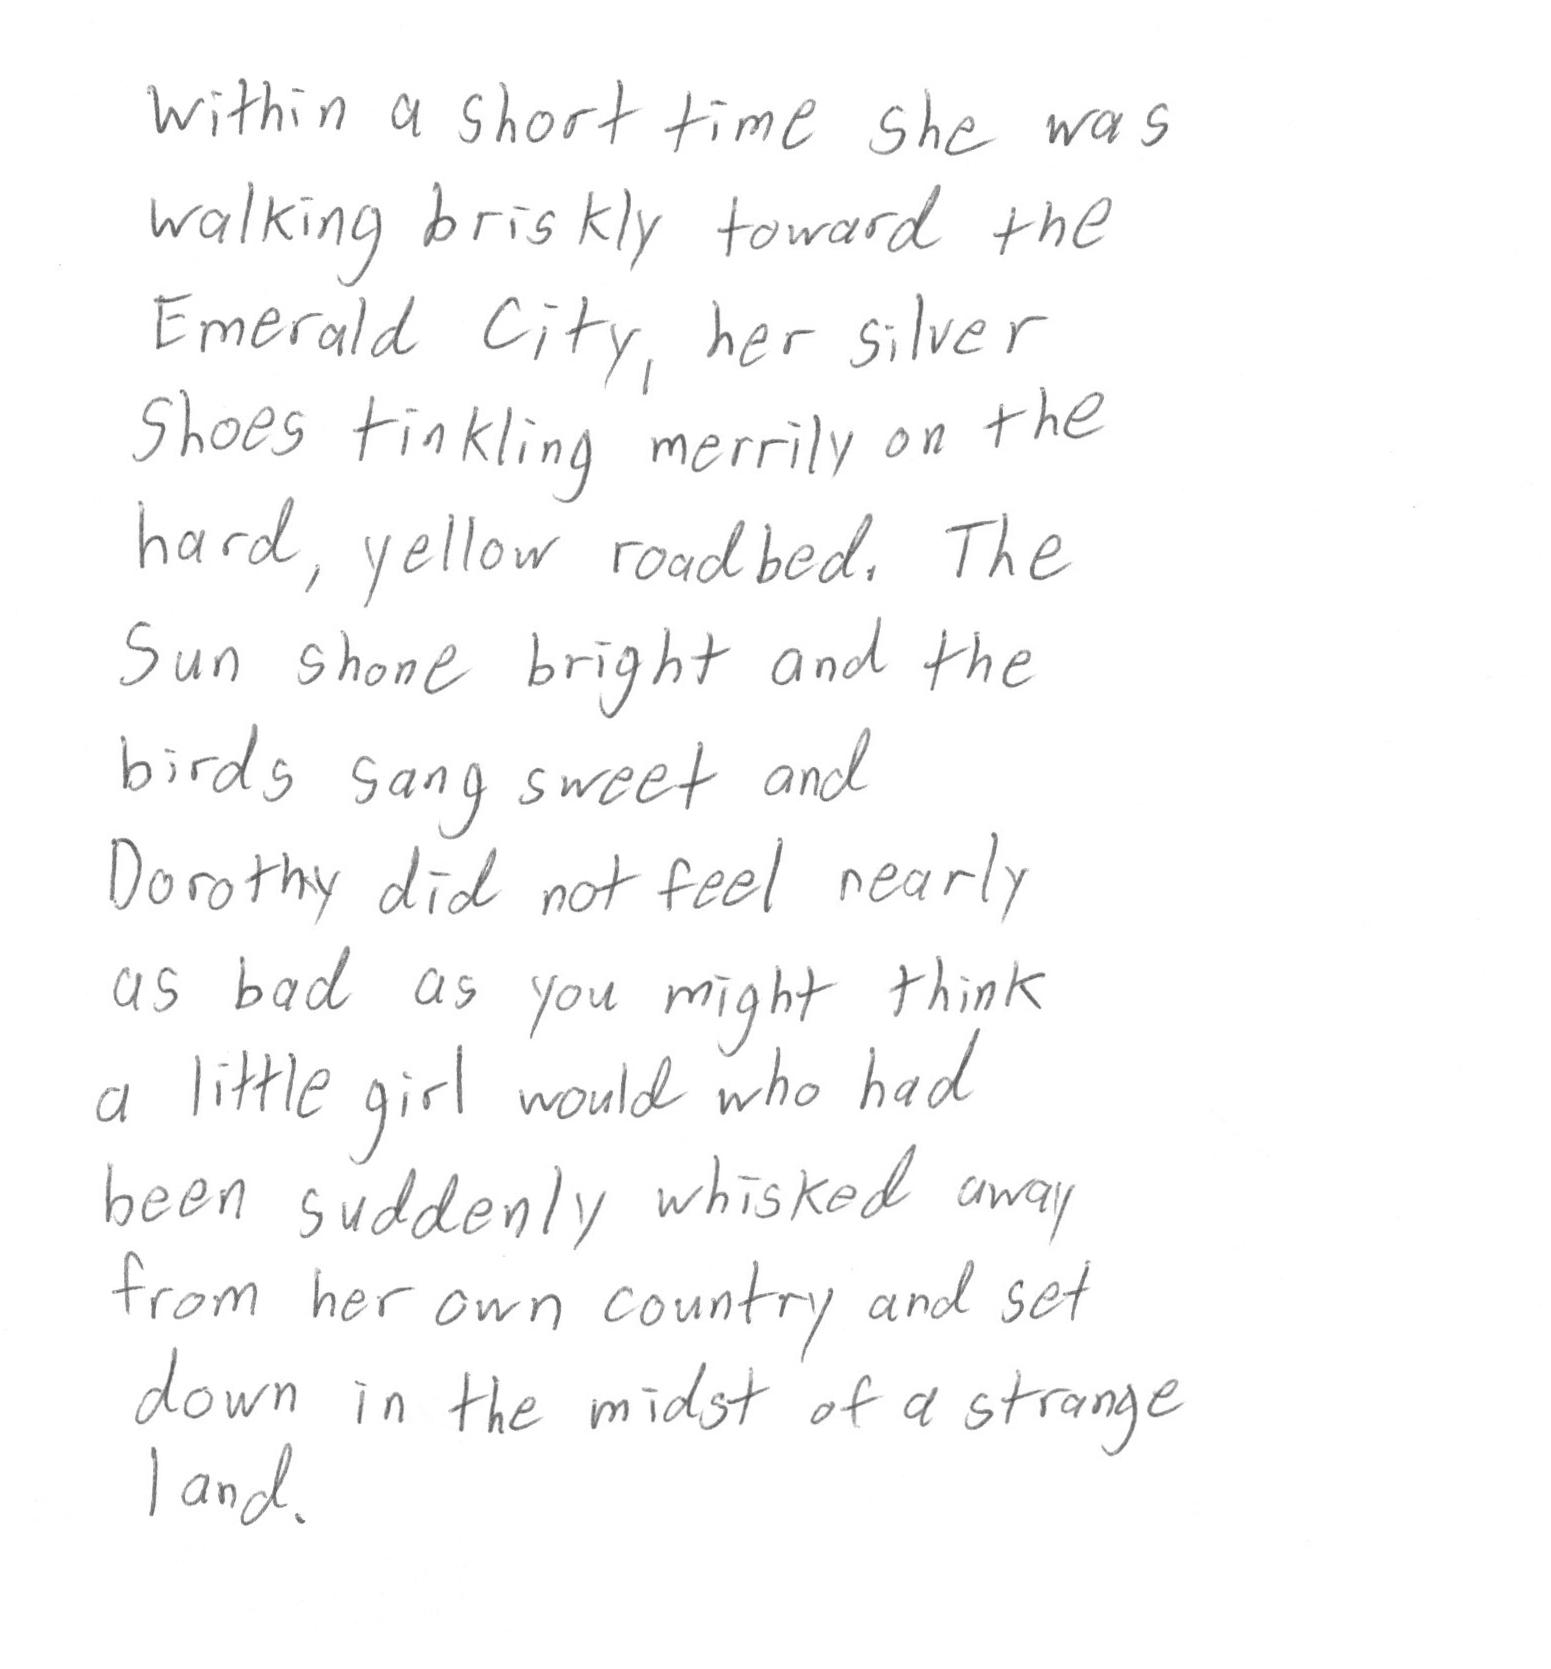 Within a short time she was
walking briskly toward the
Emerald City, her silver
Shoes tinkling merrily on the
hard, yellow roadbed. The
Sun shone bright and the
birds sang sweet and
Dorothy did not feel nearly
as bad as you might think
a little girl would who had
been suddenly whisked away
from her own country and set
down in the midst of a strange
land.